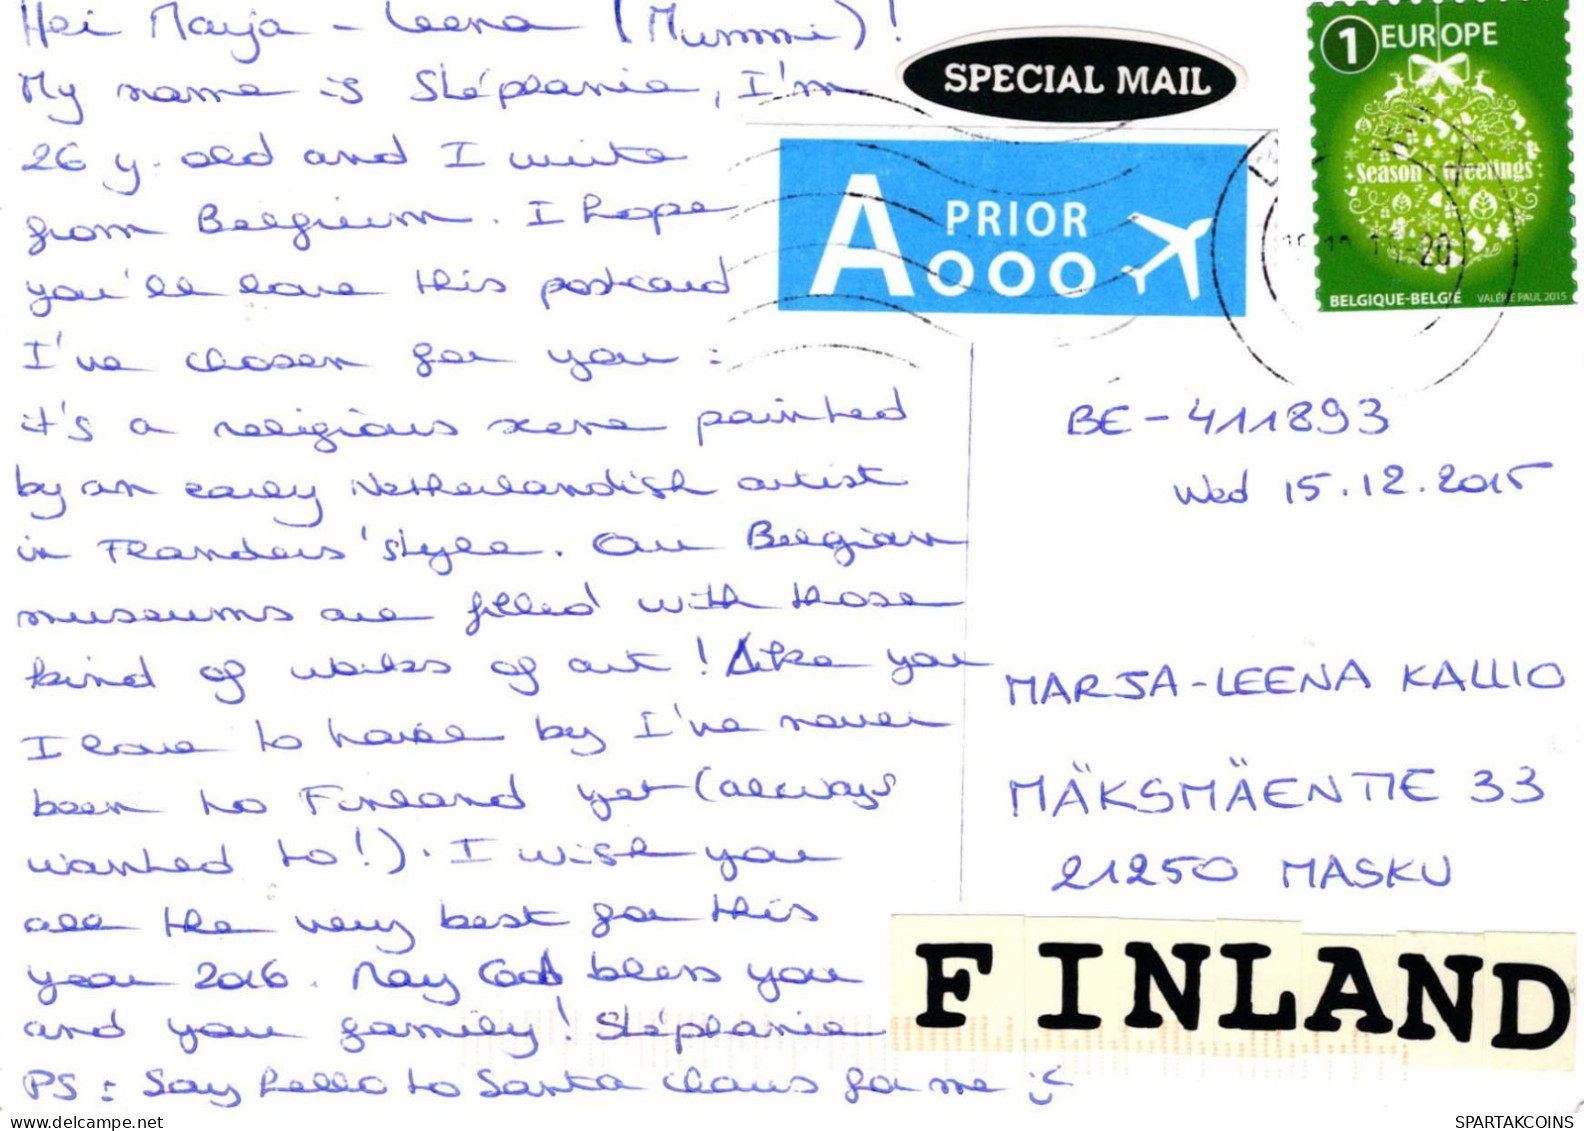 Hei Marja-Leena (Mummi)!
My name is Stéphanie, I'm
26 y. old and I write
from Belgium. I hope
you'll love this postcard
I've chosen for you:
it's a religious scene painted
by an early Netherlandish artist
in Flanders' style. Our Belgian
museums are filled with those
kind of works of art! Like you
I love to by I've never
been to Finland yet (always
wanted to!). I wish you
all the very best for this
year 2016. May God bless you
and your family! Stéphanie
PS: Say hello to Santa Claus for me :)
SPECIAL MAIL
A PRIOR
1 EUROPE
Season's Greetings
BELGIQUE-BELGIË VALÉRIE PAUL 2015
BE-411893
Wed 15.12.2015
MARJA-LEENA KALLIO
MÄKSMÄENTIE 33
21250 MASKU
FINLAND
SPARTAKCOINS
www.delcampe.net